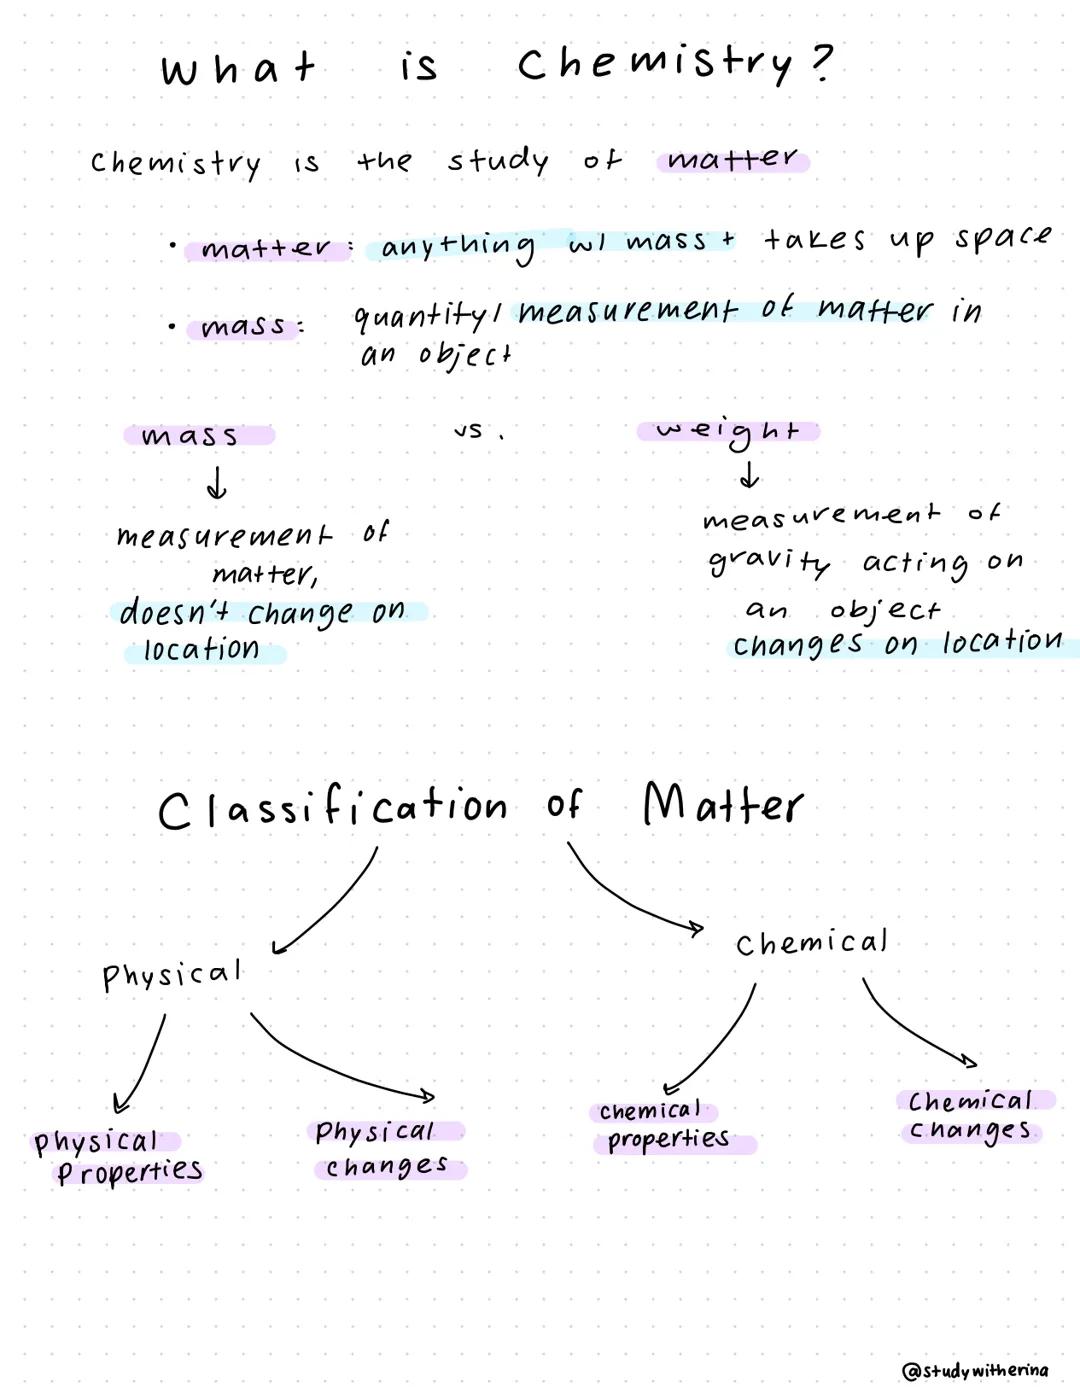 What is Chemistry?
Chemistry is the study of matter
• matter: anything w/ mass + takes up space
• mass: quantity/measurement of matter in
an object
mass vs. weight
↓ ↓
measurement of
matter,
doesn't change on
location
measurement of
gravity acting on
an object
changes on location
Classification of Matter
Physical
Chemical
Physical
Properties
Physical
changes
chemical
properties
Chemical
changes
@studywitherina